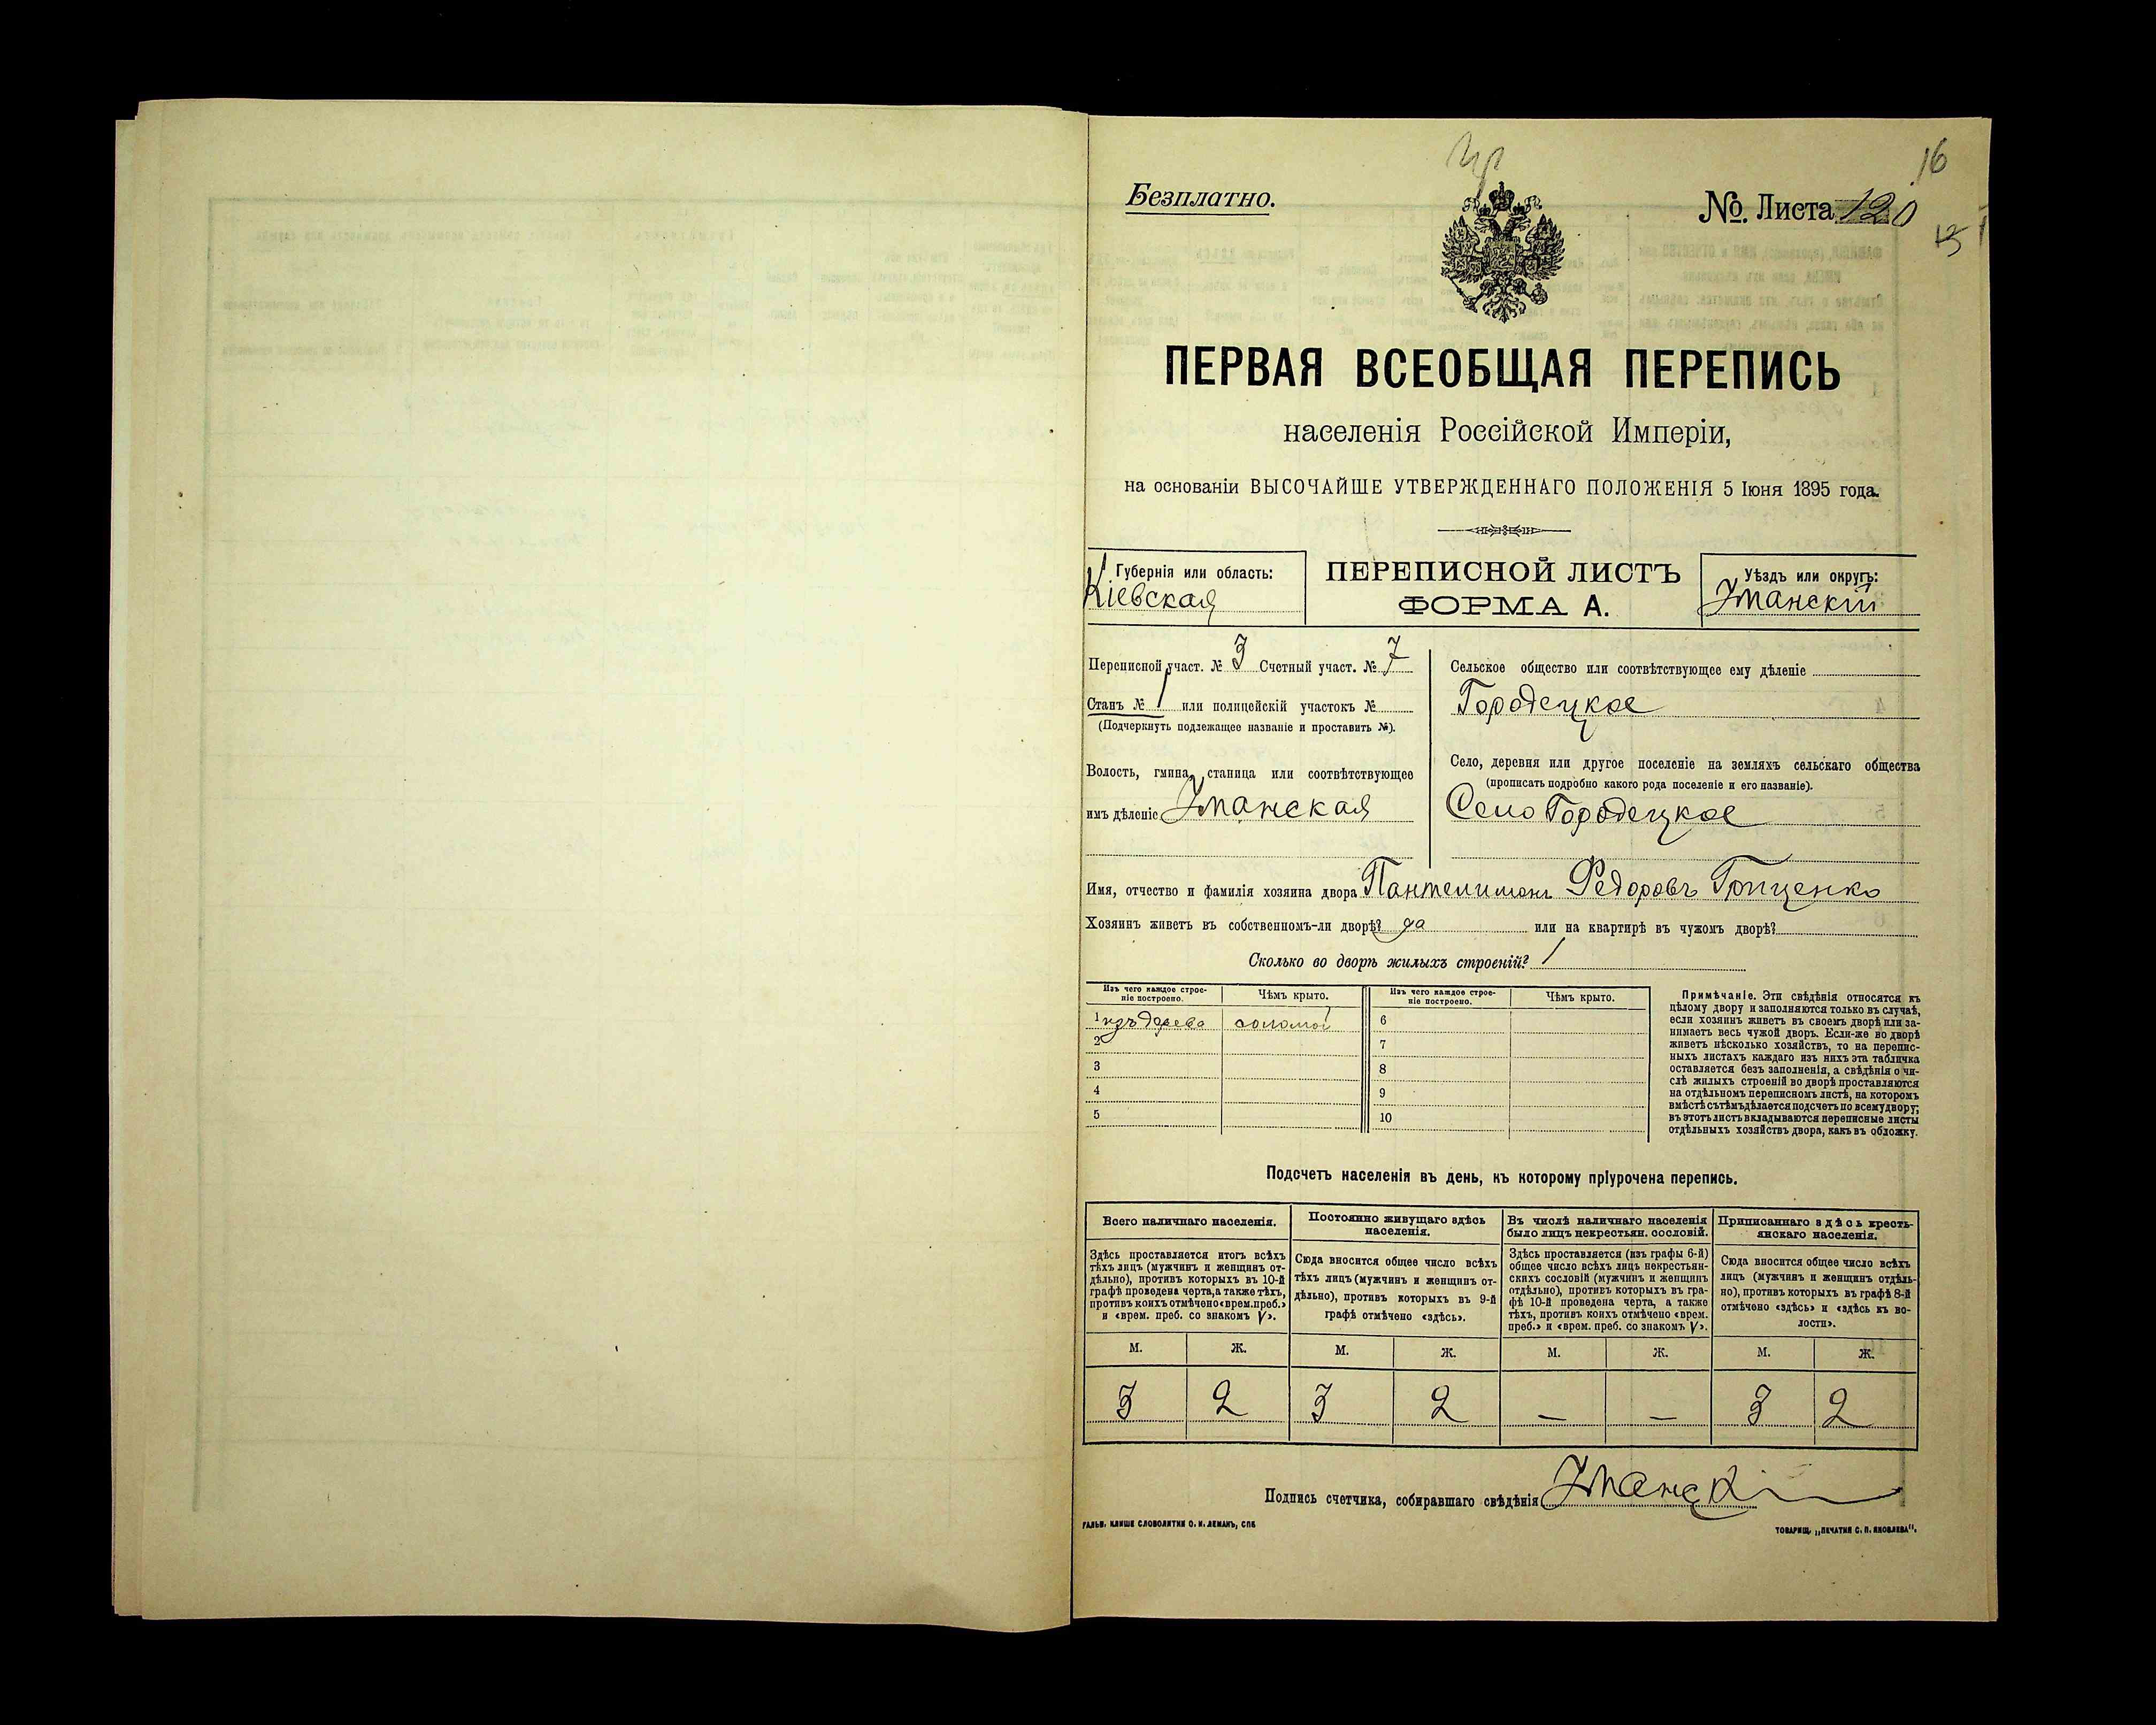 16
Безплатно.
№ Листа 120
15
ПЕРВАЯ ВСЕОБЩАЯ ПЕРЕПИСЬ
населенія Россійской Имперіи,
на основаніи ВЫСОЧАЙШЕ УТВЕРЖДЕННАГО ПОЛОЖЕНІЯ 5 Іюня 1895 года.
Губернія или область:
Кіевская
ПЕРЕПИСНОЙ ЛИСТЪ
ФОРМА А.
Уѣздъ или округъ:
Уманскій
Переписной участ. № 3 Счетный участ. № 7
Станъ № 1 или полицейскій участокъ №
(Подчеркнуть подлежащее названіе и проставить №).
Волость, гмина, станица или соотвѣтствующее
имъ дѣленіе Уманская
Сельское общество или соотвѣтствующее ему дѣленіе
Городецкое
Село, деревня или другое поселеніе на земляхъ сельскаго общества
(прописать подробно какого рода поселеніе и его названіе).
Село Городецкое
Имя, отчество и фамилія хозяина двора Пантелимонъ Федоровъ Гриценко
Хозяинъ живетъ въ собственномъ-ли дворѣ? да или на квартирѣ въ чужомъ дворѣ?
Сколько во дворѣ жилыхъ строеній? 1
Изъ чего каждое строе-
ніе построено.
Чѣмъ крыто.
Изъ чего каждое строе-
ніе построено.
Чѣмъ крыто.
1 изъ дерева соломой 6
2 7
3 8
4 9
5 10
Примѣчаніе. Эти свѣдѣнія относятся къ
цѣлому двору и заполняются только въ случаѣ,
если хозяинъ живетъ въ своемъ дворѣ или за-
нимаетъ весь чужой дворъ. Если-же во дворѣ
живетъ нѣсколько хозяйствъ, то на перепис-
ныхъ листахъ каждаго изъ нихъ эта табличка
оставляется безъ заполненія, а свѣдѣнія о чи-
слѣ жилыхъ строеній во дворѣ проставляются
на отдѣльномъ переписномъ листѣ, на которомъ
вмѣстѣ съ тѣмъ дѣлается подсчетъ по всему двору;
въ этотъ листъ вкладываются переписные листы
отдѣльныхъ хозяйствъ двора, какъ въ обложку.
Подсчетъ населенія въ день, къ которому пріурочена перепись.
Всего наличнаго населенія.
Здѣсь проставляется итогъ всѣхъ
тѣхъ лицъ (мужчинъ и женщинъ от-
дѣльно), противъ которыхъ въ 10-й
графѣ проведена черта, а также тѣхъ,
противъ коихъ отмѣчено «врем. преб.»
и «врем. преб. со знакомъ V».
Постоянно живущаго здѣсь
населенія.
Сюда вносится общее число всѣхъ
тѣхъ лицъ (мужчинъ и женщинъ от-
дѣльно), противъ которыхъ въ 9-й
графѣ отмѣчено «здѣсь».
Въ числѣ наличнаго населенія
было лицъ некрестьян. сословій.
Здѣсь проставляется (изъ графы 6-й)
общее число всѣхъ лицъ некрестьян-
скихъ сословій (мужчинъ и женщинъ
отдѣльно), противъ которыхъ въ гра-
фѣ 10-й проведена черта, а также
тѣхъ, противъ коихъ отмѣчено «врем.
преб.» и «врем. преб. со знакомъ V».
Приписаннаго здѣсь кресть-
янскаго населенія.
Сюда вносится общее число всѣхъ
лицъ (мужчинъ и женщинъ отдѣль-
но), противъ которыхъ въ графѣ 8-й
отмѣчено «здѣсь» и «здѣсь къ во-
лости».
М. Ж. М. Ж. М. Ж. М. Ж.
3 2 3 2 — — 3 2
Подпись счетчика, собиравшаго свѣдѣнія Уманскі
ГАЛЬВ. КЛИШЕ СЛОВОЛИТНИ О. И. ЛЕМАНЪ, СПБ
ТОВАРИЩ. „ПЕЧАТНЯ С. П. ЯКОВЛЕВА".